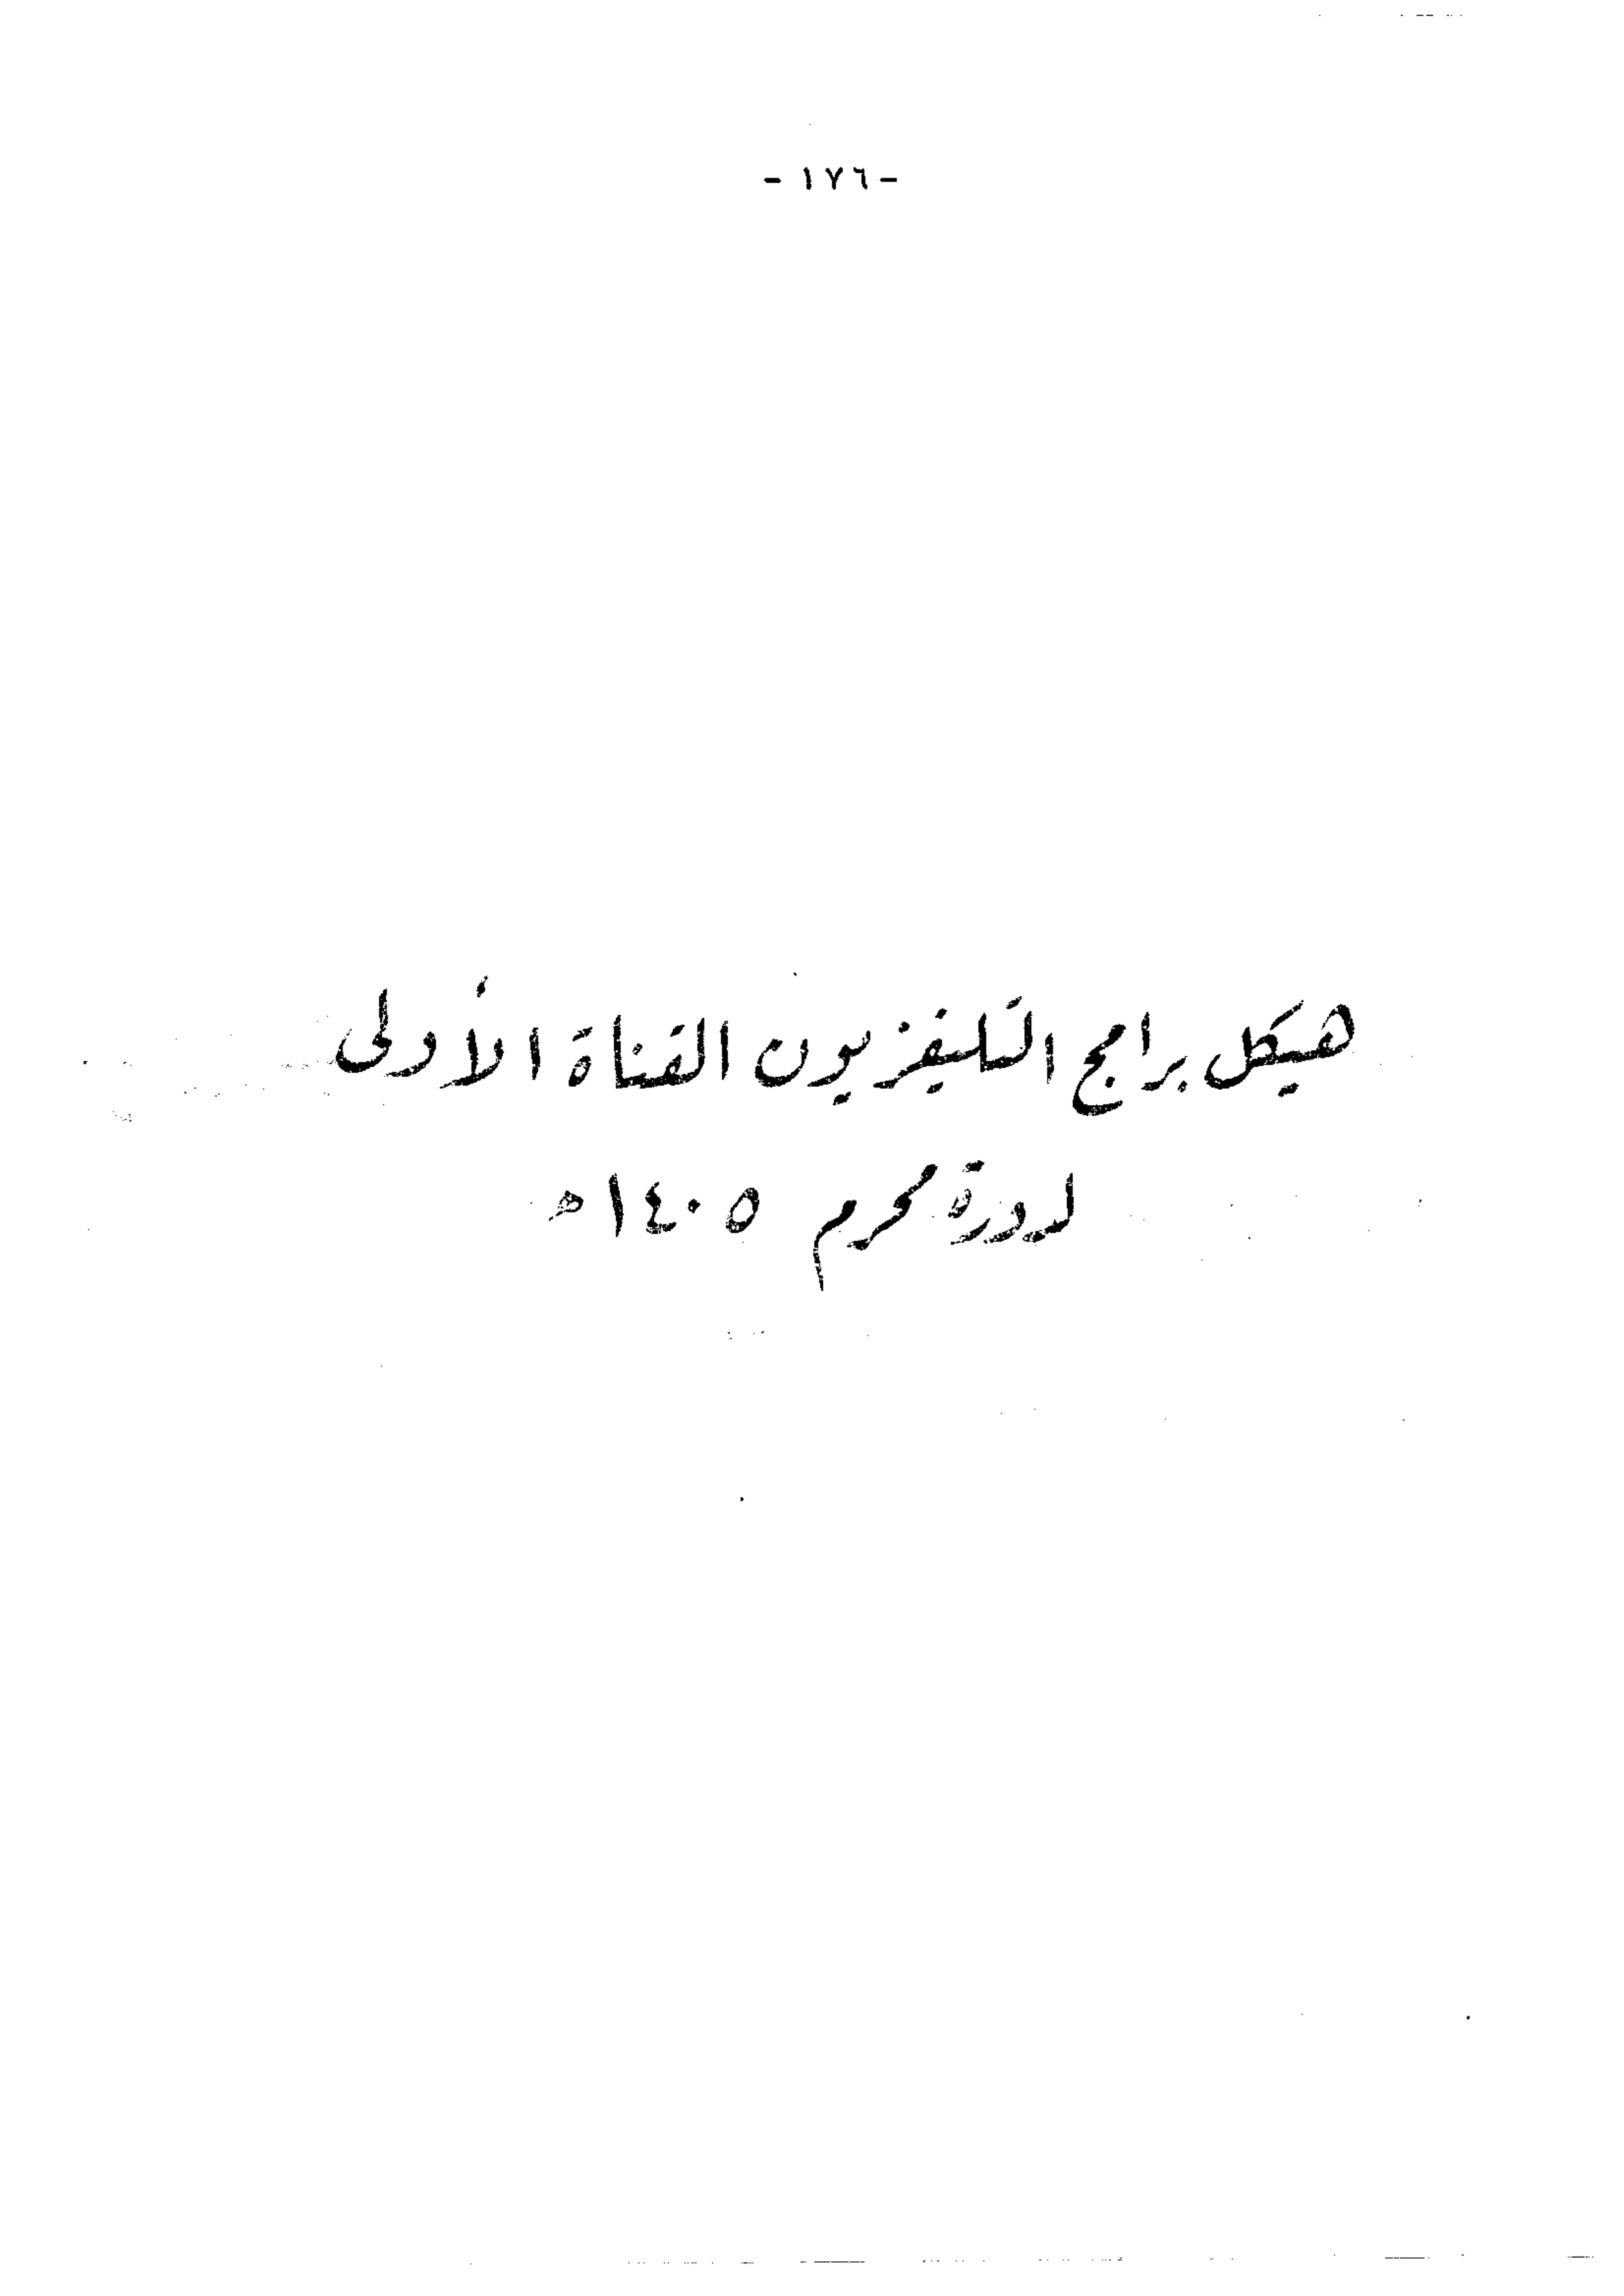 - ١٧٦ -
هيكل برامج التليفزيون القناة الأولى
لدورة محرم ١٤٠٥ هـ